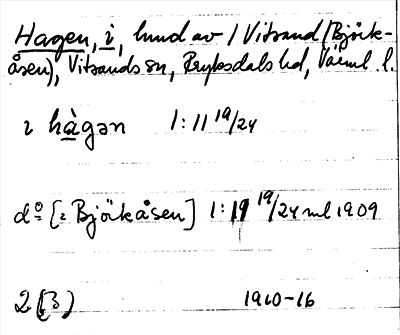 Hagen, i, hmd av 1 Vitsand (Björk-
åsen), Vitsands sn, Fryksdals hd, Värml. l.
i hàgən 1:11 19/24
do [= Björkåsen] 1:11 19/24 ml 1909
2 (3) 1910-16